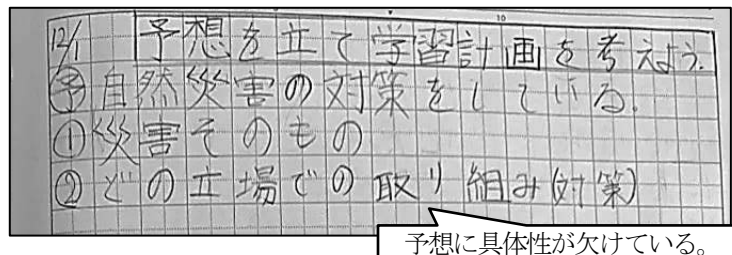 12/1 予想を立て学習計画を考えよう.
予 自然災害の対策をしている.
①災害そのもの
②どの立場での取り組み(対策)
予想に具体性が欠けている。